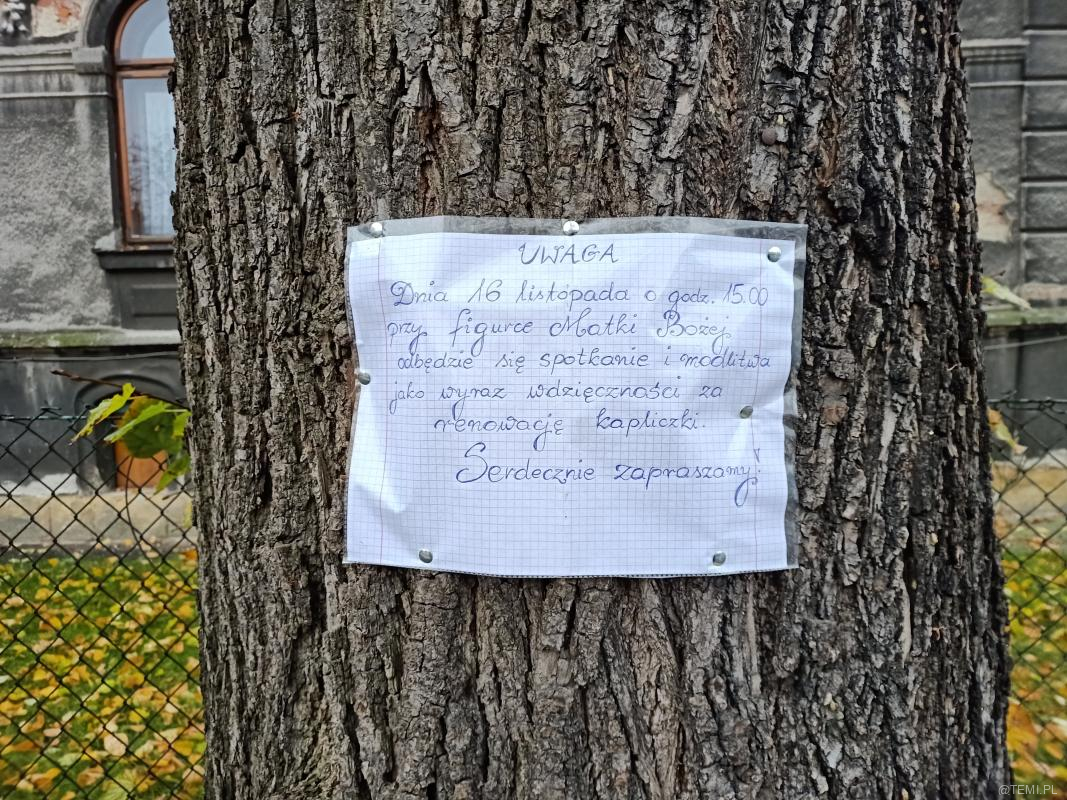 UWAGA
Dnia 16 listopada o godz. 15.00
przy figurce Matki Bożej
odbędzie się spotkanie i modlitwa
jako wyraz wdzięczności za
renowację kapliczki.
Serdecznie zapraszamy!
@TEMI.PL